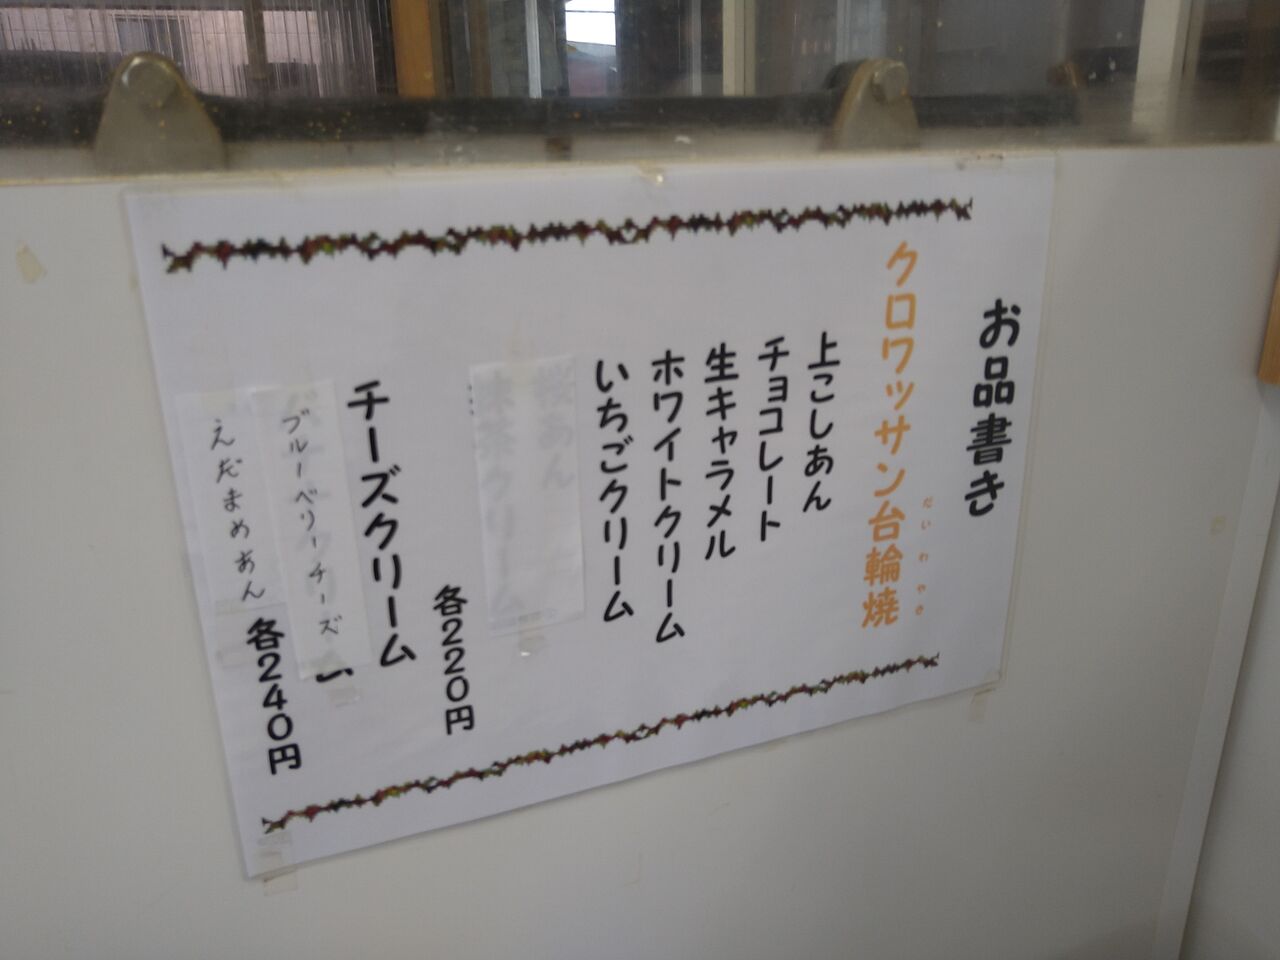 お品書き
クロワッサン台輪焼
だいわやき
上こしあん
チョコレート
生キャラメル
ホワイトクリーム
いちごクリーム
桜あん
抹茶クリーム
各220円
チーズクリーム
ブルーベリーチーズ
えだまめあん
各240円